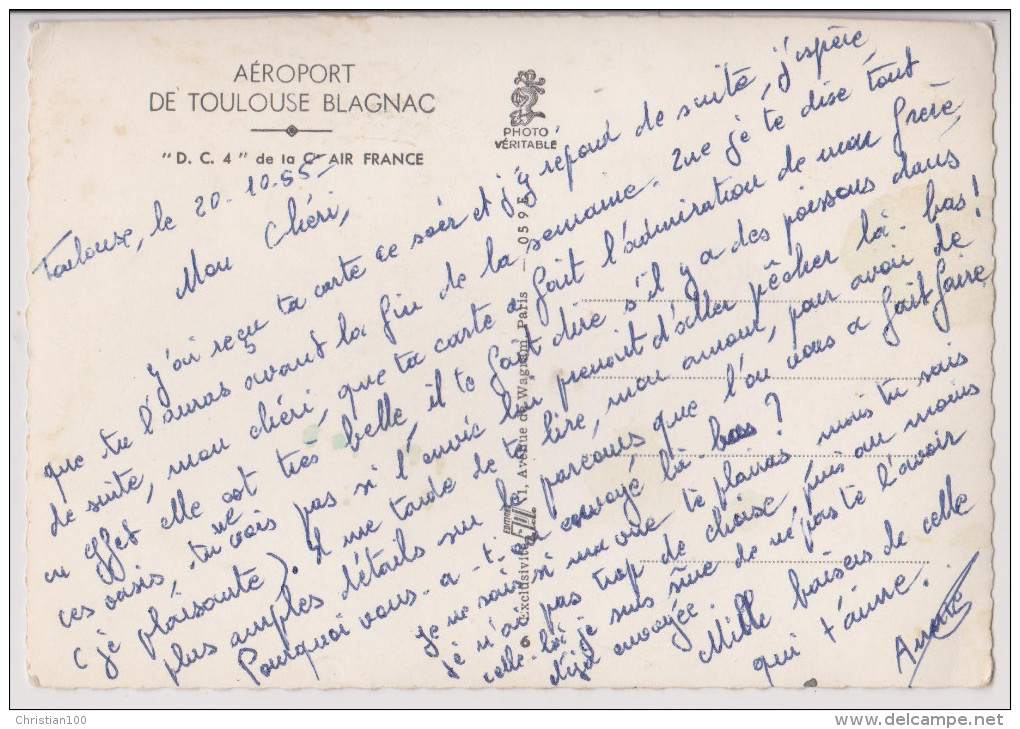 AÉROPORT
DE TOULOUSE BLAGNAC
"D. C. 4" de la Cie AIR FRANCE
PHOTO
VÉRITABLE
Toulouse, le 20-10-55-
Mon Chéri,
J'ai reçu ta carte ce soir et j'y répond de suite, j'espère
que tu l'auras avant la fin de la semaine. Que je te dise tout
de suite, mon chéri, que ta carte a fait l'admiration de mon frère
en effet elle est très belle, il te fait dire s'il y a des poissons dans
ces oasis, tu ne vois pas si l'envie lui prenait d'aller pêcher là-bas!
(je plaisante). Il me tarde de te lire, mon amour, pour avoir de
plus amples détails sur le parcours que l'on vous a fait faire
Pourquoi vous a-t-on envoyé là bas?
Je ne sais si ma vue te plaira? mais tu sais
je n'ai pas trop de choise, puis au moins
celle-là je suis sûre de ne pas te l'avoir
déjà envoyée.
Mille baisers de celle
qui t'aime.
6 Exclusivité 11, Avenue de Wagram, Paris - 0595
Christian100
delcampe.net